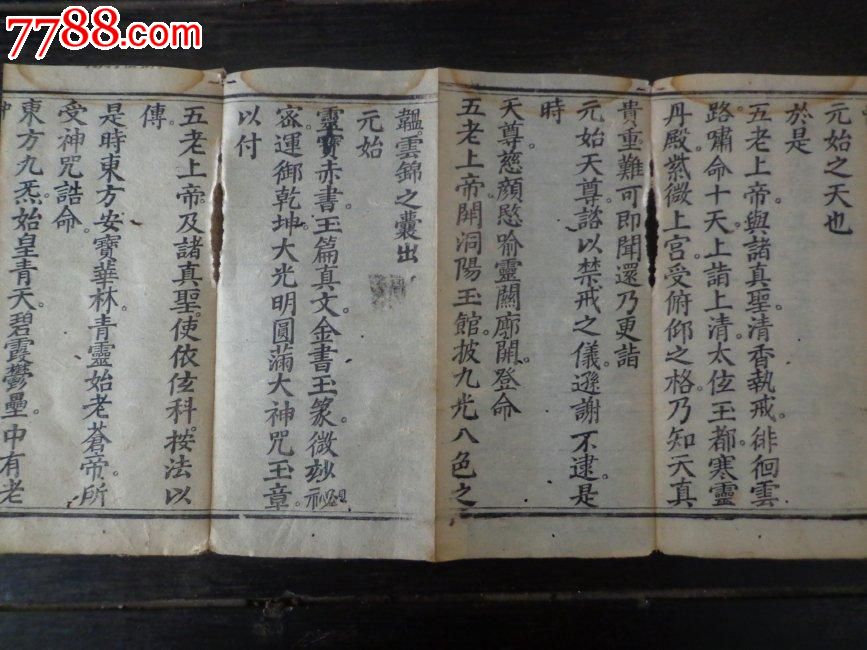 7788.com
元始之天也
於是
五老上帝。與諸真聖。清香執戒。徘徊雲
路。嘯命十天。上詣上清。太位玉都。寒靈
丹殿。紫微上宮。受俯仰之格。乃知天真
貴重難可即聞還乃更詣
元始天尊。諮以禁戒之儀。遜謝不逮。是
時
天尊慈顏愍喻。靈關廓開。登命
五老上帝。開洞陽玉館。披九光八色之
韞。雲錦之囊。出
元始
靈寶赤書。王篇真文。金書玉篆。微妙
密運。御乾坤。大光明圓滿大神咒玉章。
以付
五老上帝。及諸真聖。使依位科。按法以
傳。
是時東方安寶華林青靈始老蒼帝。所
受神咒誥命。
東方九炁。始皇青天。碧霞鬱壘。中有老